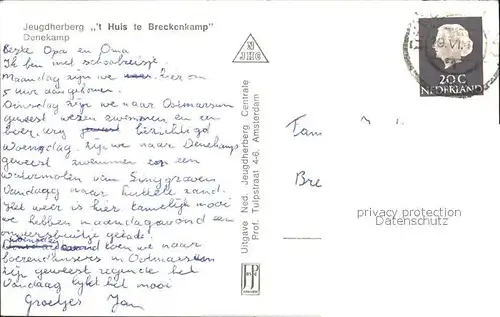 Jeugdherberg „'t Huis te Breckenkamp"
Denekamp
Beste Opa en Oma
Ik ben met schoolreisje.
Maandag zijn we hier om
5 uur aangekomen.
Dinsdag zijn we naar Ootmarsum
geweest wezen zwemmen en een
boerderij bezichtigd
Woensdag zijn we naar Denekamp
geweest zwemmen en een
watermolen van Singgraven
Vandaag naar zand.
Het weer is hier tamelijk mooi
we hebben maandagavond een
onweersbuitje gehad.
toen we naar
in Ootmarsum
zijn geweest regende het
Vandaag lijkt het mooi
Groetjes Jan
N
JHC
Uitgave Ned. Jeugdherberg Centrale
Prof. Tulpstraat 4-6, Amsterdam
20 C
NEDERLAND
Fam
Bre
privacy protection
Datenschutz